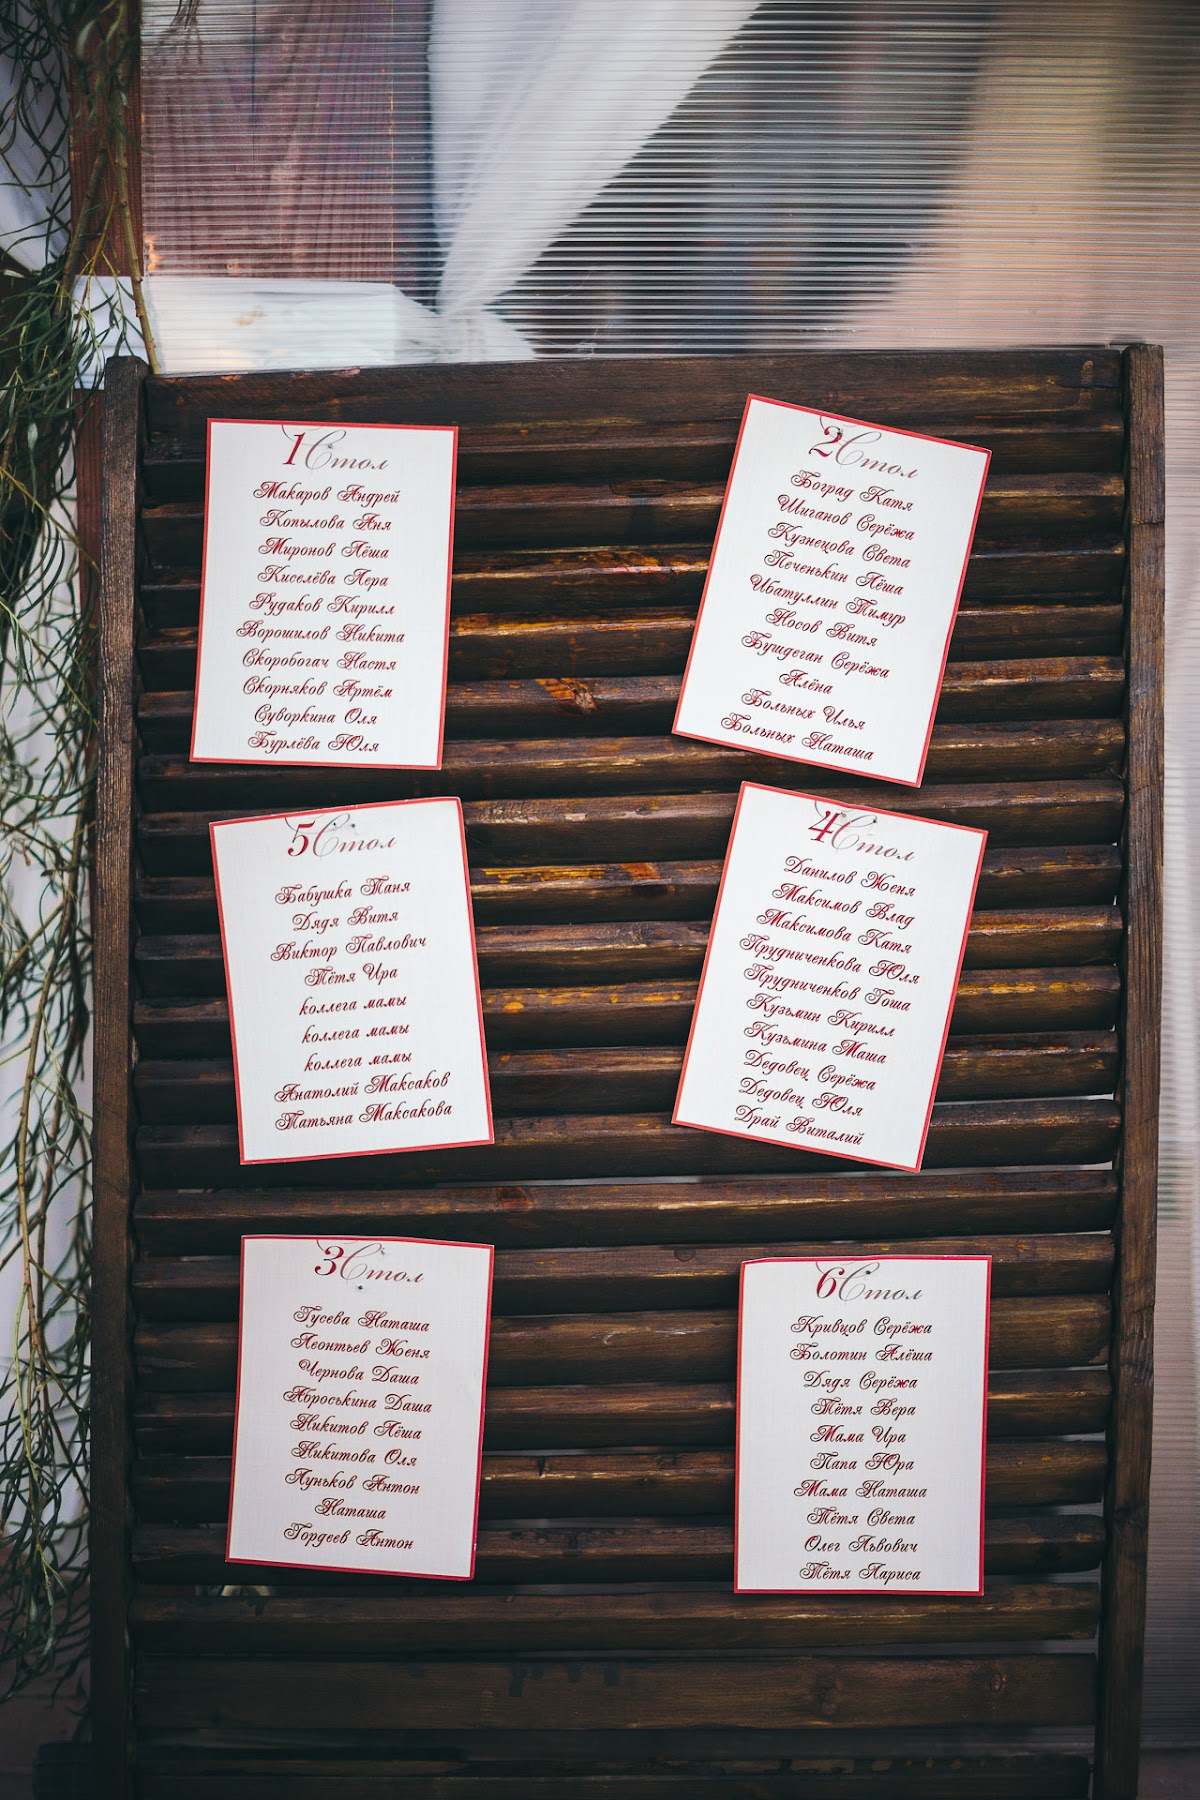 1 Стол
Макаров Андрей
Копылова Аня
Миронов Лёша
Киселёва Лера
Рудаков Кирилл
Ворошилов Никита
Скоробогач Настя
Скорняков Артём
Суворкина Оля
Бурлёва Юля
2 Стол
Боград Катя
Шиганов Серёжа
Кузнецова Света
Печенькин Лёша
Ибатуллин Тимур
Носов Витя
Бушдеган Серёжа
Алёна
Больных Илья
Больных Наташа
5 Стол
Бабушка Таня
Дядя Витя
Виктор Павлович
Тётя Ира
коллега мамы
коллега мамы
коллега мамы
Анатолий Максаков
Татьяна Максакова
4 Стол
Данилов Женя
Максимов Влад
Максимова Катя
Прудниченкова Юля
Прудниченков Гоша
Кузьмин Кирилл
Кузьмина Маша
Дедовец Серёжа
Дедовец Юля
Драй Виталий
3 Стол
Гусева Наташа
Леонтьев Женя
Чернова Даша
Аброськина Даша
Никитов Лёша
Никитова Оля
Луньков Антон
Наташа
Гордеев Антон
6 Стол
Кривцов Серёжа
Болотин Алёша
Дядя Серёжа
Тётя Вера
Мама Ира
Папа Юра
Мама Наташа
Тётя Света
Олег Львович
Тётя Лариса